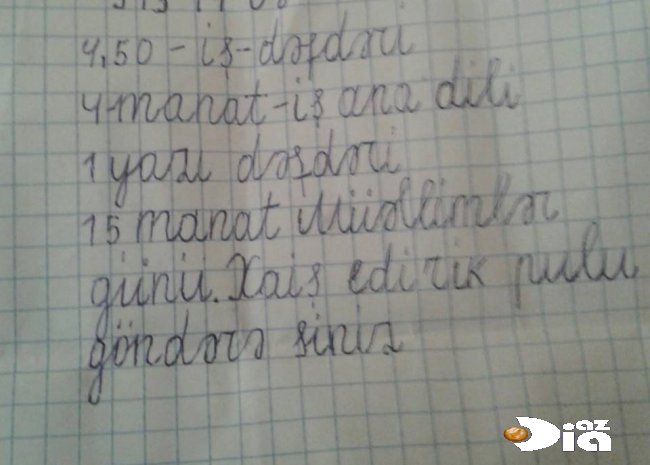 4,50 - iş - dəfdəri
4 manat - iş ana dili
1 yazı dəfdəri
15 manat Müəllimlər
günü. Xaiş edirik pulu
göndərə siniz
Dia
az